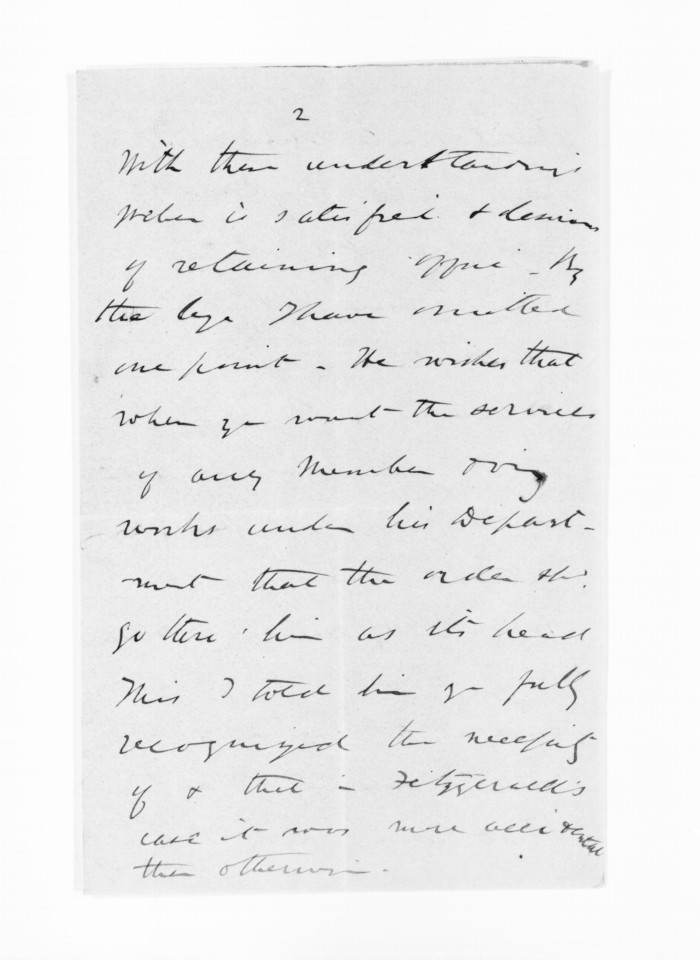 2
With these understandings
Weber is satisfied & desirous
of retaining office - By
the bye I have omitted
one point - He wishes that
when you want the services
of any Member doing
works under his Depart-
ment that the order shd.
go thro' him as its head
This I told him you fully
recognized the necessity
of & that in Fitzgerald's
case it was more accidental
than otherwise -